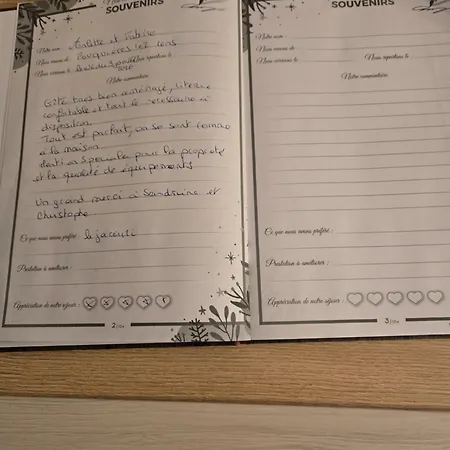 SOUVENIRS
Notre nom : et
Nous venons de : et Lens
Nous sommes le Nous repartons le
Notre commentaire
Gîte très bien aménagé, literie
confortable et tout le nécessaire à
disposition.
Tout est parfait, on se sent comme
à la maison.
Mention spéciale pour la propreté
et la qualité de équipements
Un grand merci à Sandrine et
Christophe
Ce que nous avons préféré : le jacuzzi
Prestation à améliorer :
Appréciation de notre séjour :
2
SOUVENIRS
Notre nom :
Nous venons de
Nous sommes le Nous repartons le
Notre commentaire
Ce que nous avons préféré :
Prestation à améliorer :
Appréciation de notre séjour :
3